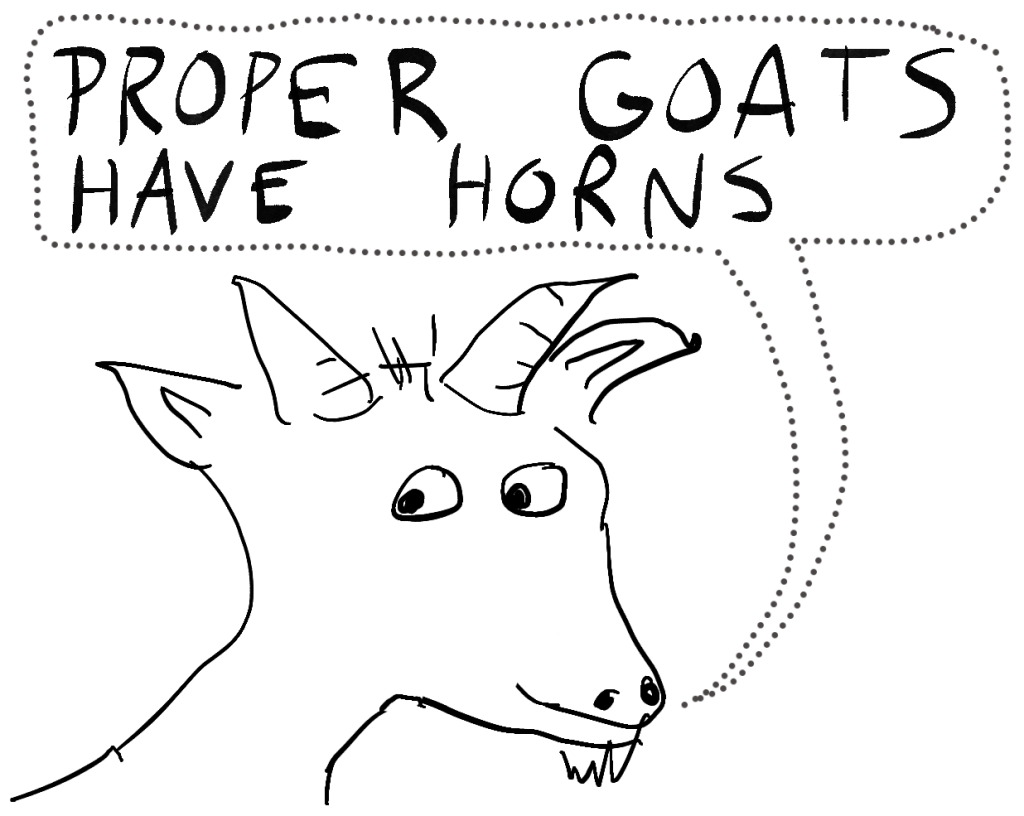 PROPER GOATS
HAVE HORNS